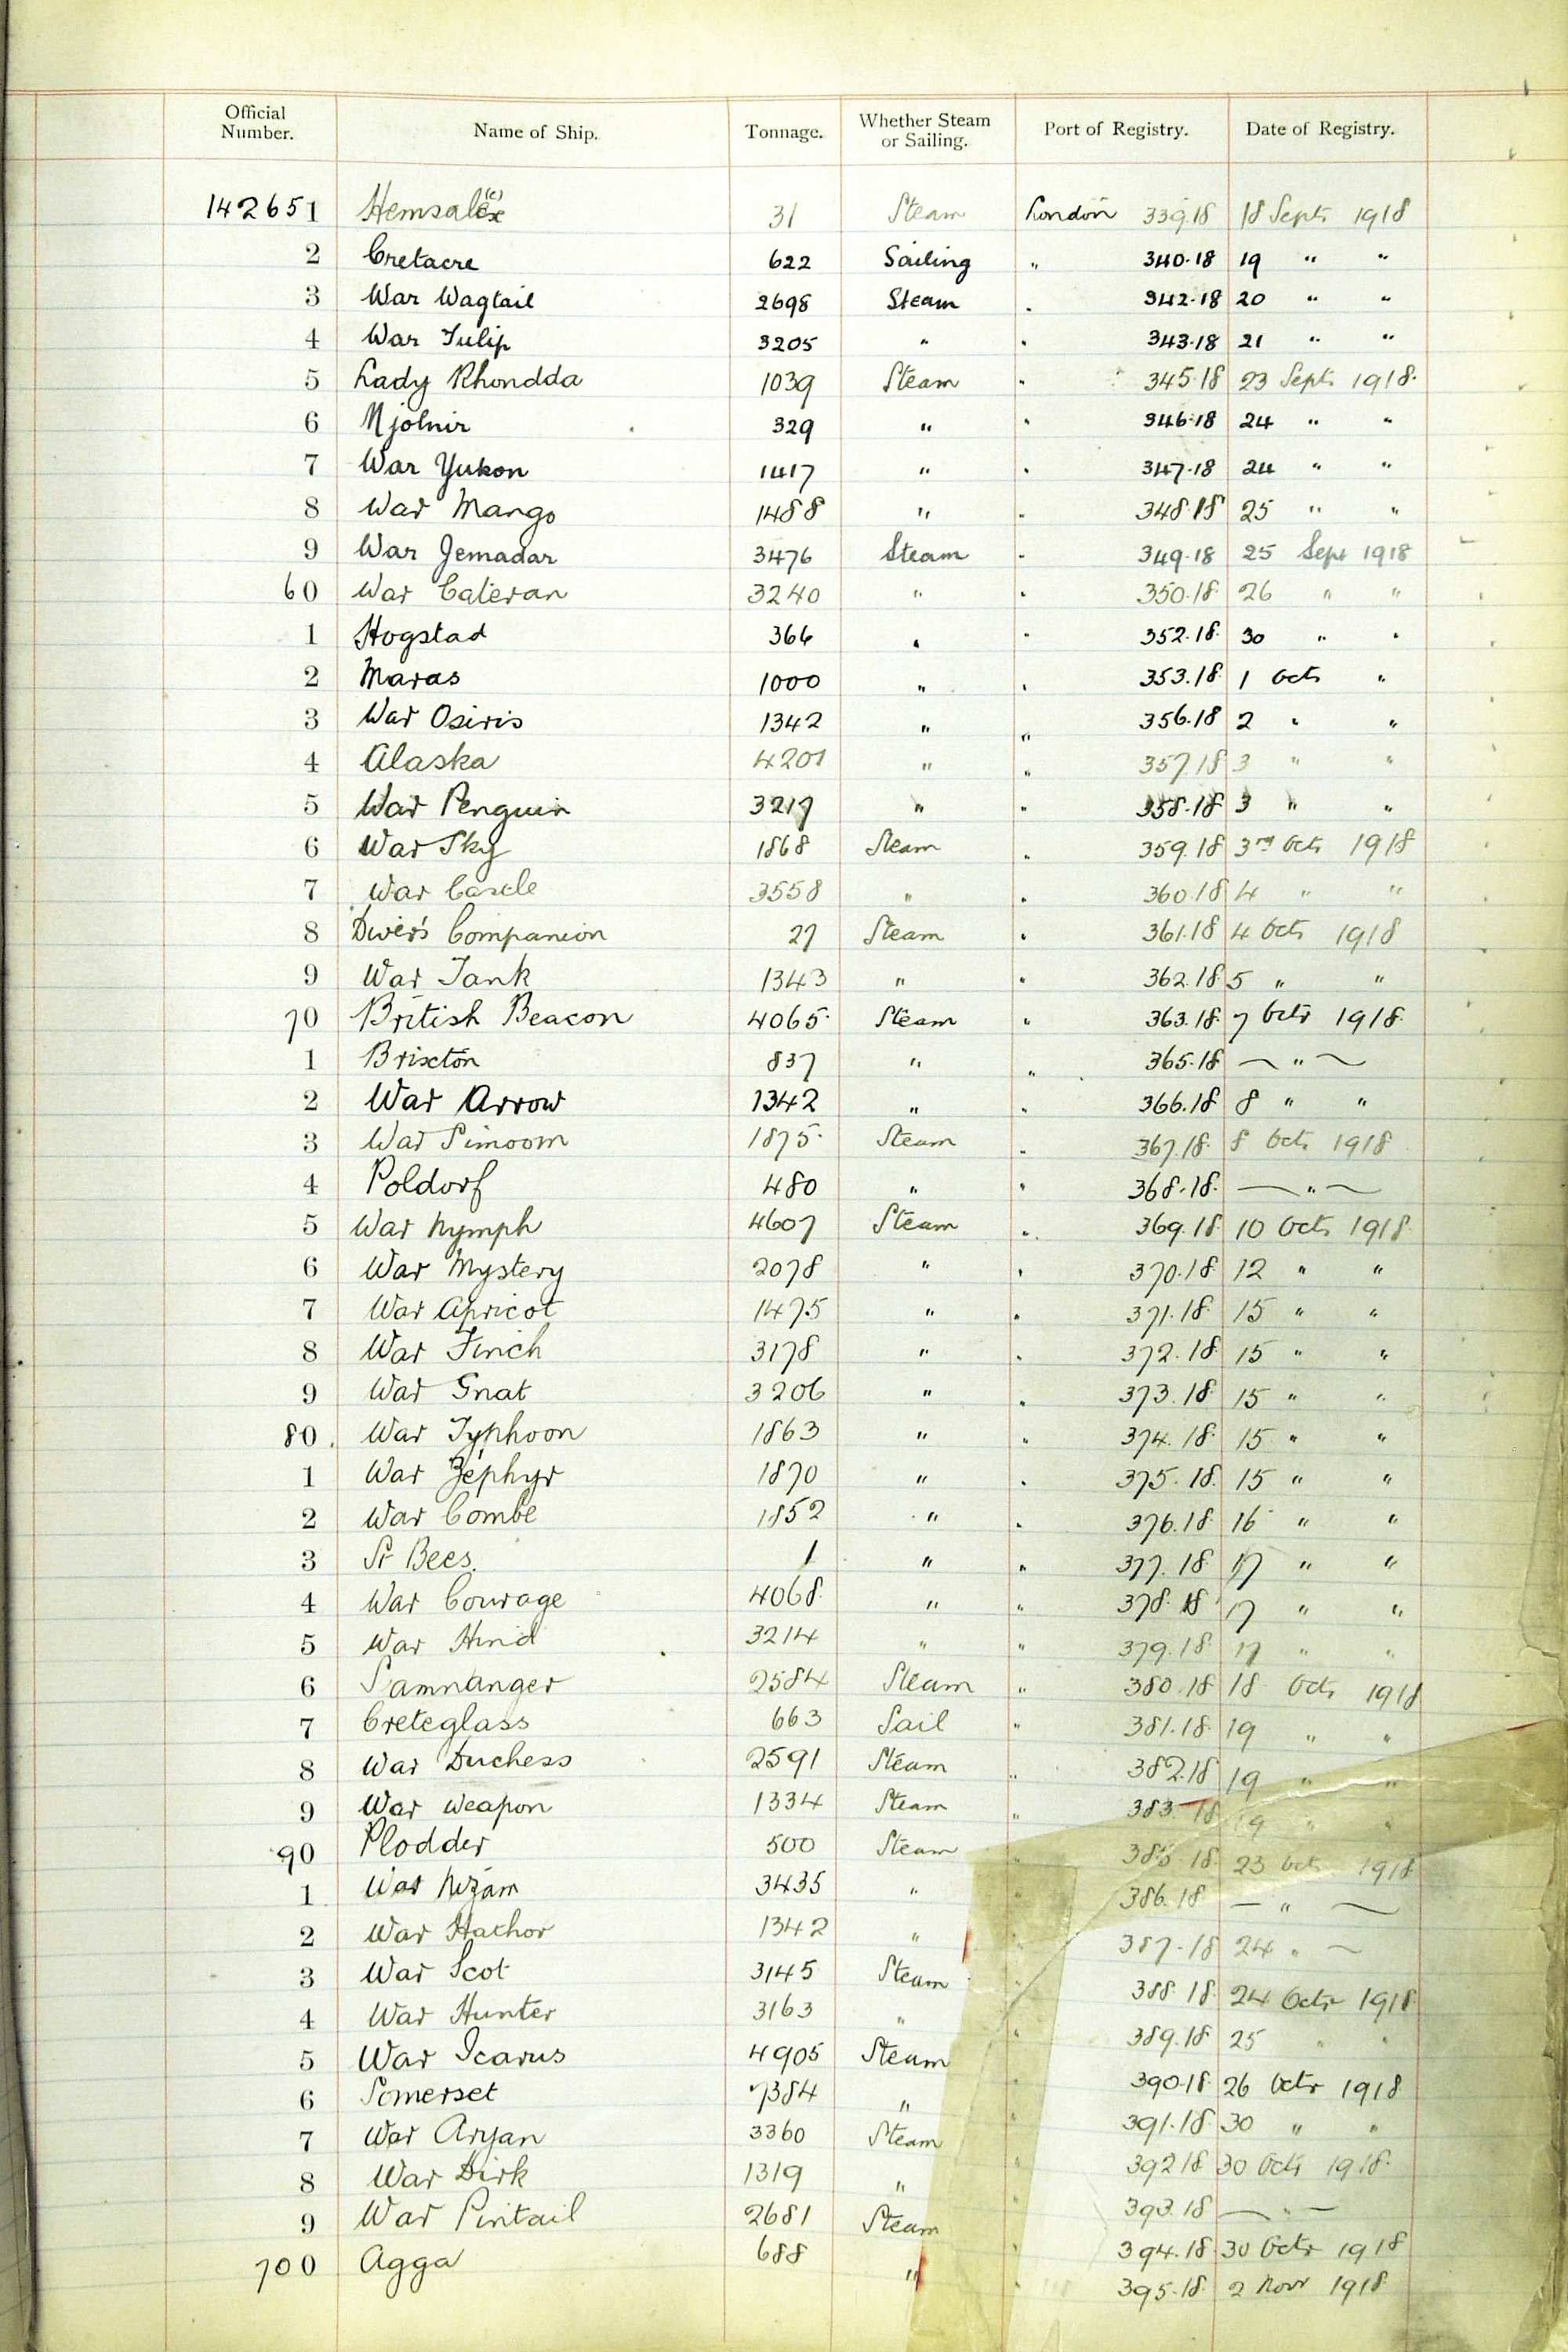 Official Number. Name of Ship. Tonnage. Whether Steam or Sailing. Port of Registry. Date of Registry.
142651 Hemsalex (e) 31 Steam London 339.18 18 Sept 1918
2 Cretacre 622 Sailing " 340.18 19 " "
3 War Wagtail 2698 Steam " 342.18 20 " "
4 War Tulip 3205 " " 343.18 21 " "
5 Lady Rhondda 1039 Steam " 345.18 23 Sept 1918.
6 Njolnir 329 " " 346.18 24 " "
7 War Yukon 1417 " " 347.18 24 " "
8 War Mango 1488 " " 348.18 25 " "
9 War Jemadar 3476 Steam " 349.18 25 Sept 1918
60 War Cateran 3240 " " 350.18 26 " "
1 Hogstad 366 " " 352.18 30 " "
2 Maras 1000 " " 353.18 1 Oct " 
3 War Osiris 1342 " " 356.18 2 " "
4 Alaska 4201 " " 357.18 3 " "
5 War Penguin 3217 " " 358.18 3 " "
6 War Sky 1868 Steam " 359.18 3rd Oct 1918
7 War Castle 3558 " " 360.18 4 " "
8 Diver's Companion 27 Steam " 361.18 4 Oct 1918
9 War Tank 1343 " " 362.18 5 " "
70 British Beacon 4065 Steam " 363.18 7 Octr 1918.
1 Brixton 837 " " 365.18 — " —
2 War Arrow 1342 " " 366.18 8 " "
3 War Simoom 1875 Steam " 367.18 8 Oct 1918
4 Poldorf 480 " " 368.18 — " —
5 War Nymph 4607 Steam " 369.18 10 Oct 1918
6 War Mystery 2078 " " 370.18 12 " "
7 War Apricot 1475 " " 371.18 15 " "
8 War Finch 3178 " " 372.18 15 " "
9 War Gnat 3206 " " 373.18 15 " "
80. War Typhoon 1863 " " 374.18 15 " "
1 War Zephyr 1870 " " 375.18 15 " "
2 War Combe 1852 " " 376.18 16 " "
3 St Bees. 1 " " 377.18 17 " "
4 War Courage 4068 " " 378.18 17 " "
5 War Hind 3214 " " 379.18 17 " "
6 Samnanger 2584 Steam " 380.18 18 Oct 1918
7 Creteglass 663 Sail " 381.18 19 " "
8 War Duchess 2591 Steam " 382.18 19 " "
9 War Weapon 1334 Steam " 383.18 19 " "
90 Plodder 500 Steam " 385.18 23 Oct 1918
1 War Nizam 3435 " " 386.18 — " —
2 War Hathor 1342 " " 387.18 24 " —
3 War Scot 3145 Steam " 388.18 24 Octr 1918
4 War Hunter 3163 " " 389.18 25 " "
5 War Icarus 4905 Steam " 390.18 26 Octr 1918
6 Somerset 7384 " " 391.18 30 " "
7 War Aryan 3360 Steam " 392.18 30 Oct 1918.
8 War Dirk 1319 " " 393.18 — " —
9 War Pintail 2681 Steam " 394.18 30 Octr 1918
700 Agga 688 " " 395.18 2 Novr 1918